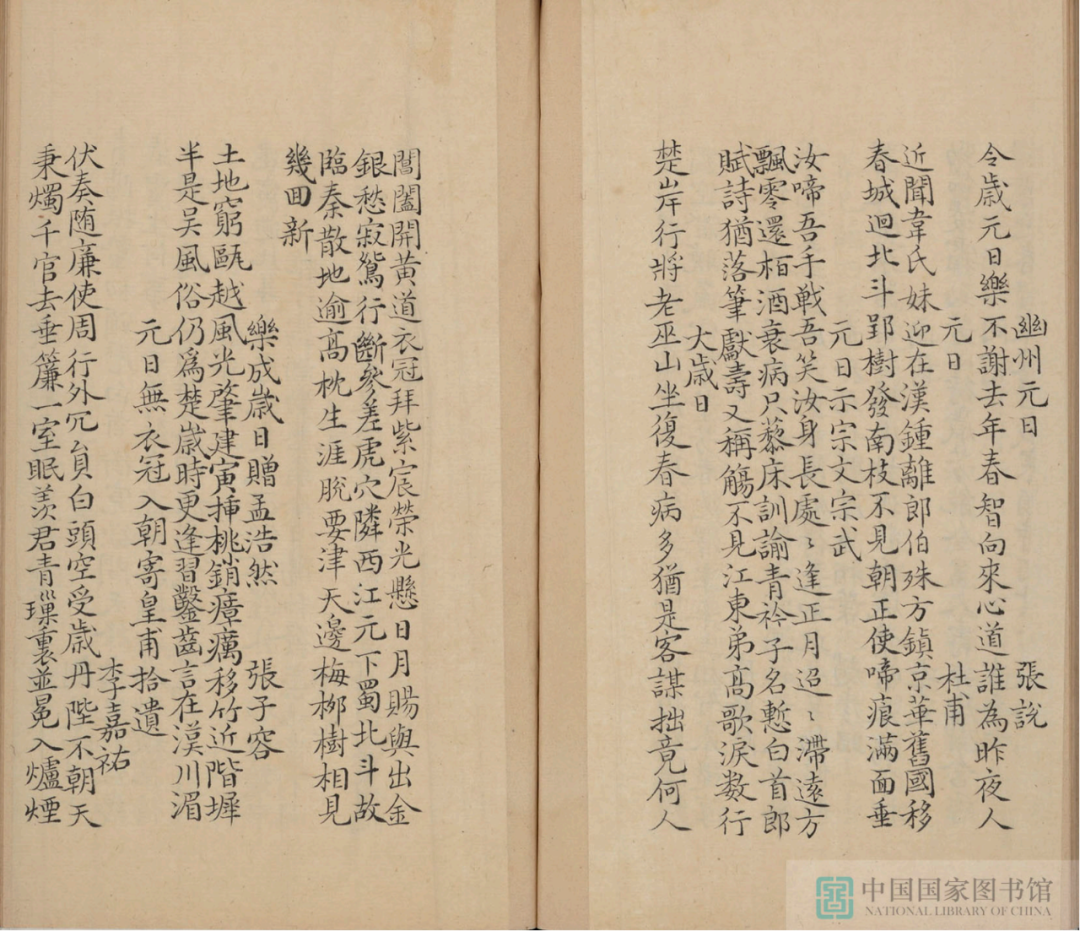 幽州元日 張說
今歲元日樂不謝去年春智向來心道誰為昨夜人
元日 杜甫
近聞韋氏妹迎在漢鍾離郎伯殊方鎮京華舊國移
春城迴北斗郢樹發南枝不見朝正使啼痕滿面垂
元日示宗文宗武
汝啼吾手戰吾笑汝身長處〻逢正月迢〻滯遠方
飄零還栢酒衰病只藜床訓諭青衿子名慙白首郎
賦詩猶落筆獻壽又稱觴不見江東弟高歌淚数行
大歲日
楚岸行將老巫山坐復春病多猶是客謀拙竟何人
閶闔開黃道衣冠拜紫宸榮光懸日月賜與出金
銀愁寂鵷行斷參差虎穴隣西江元下蜀北斗故
臨秦散地逾高枕生涯脫要津天邊梅栁樹相見
幾回新
樂成歲日贈孟浩然 張子容
土地窮甌越風光肇建寅揷桃銷瘴癘移竹近階墀
半是吳風俗仍爲楚歲時更逢習鑿齒言在漢川湄
元日無衣冠入朝寄皇甫拾遺
李嘉祐
伏奏随廉使周行外冗員白頭空受歲丹陛不朝天
秉燭千官去垂簾一室眠羨君青瑣裏並冕入爐煙
中国国家图书馆
NATIONAL LIBRARY OF CHINA